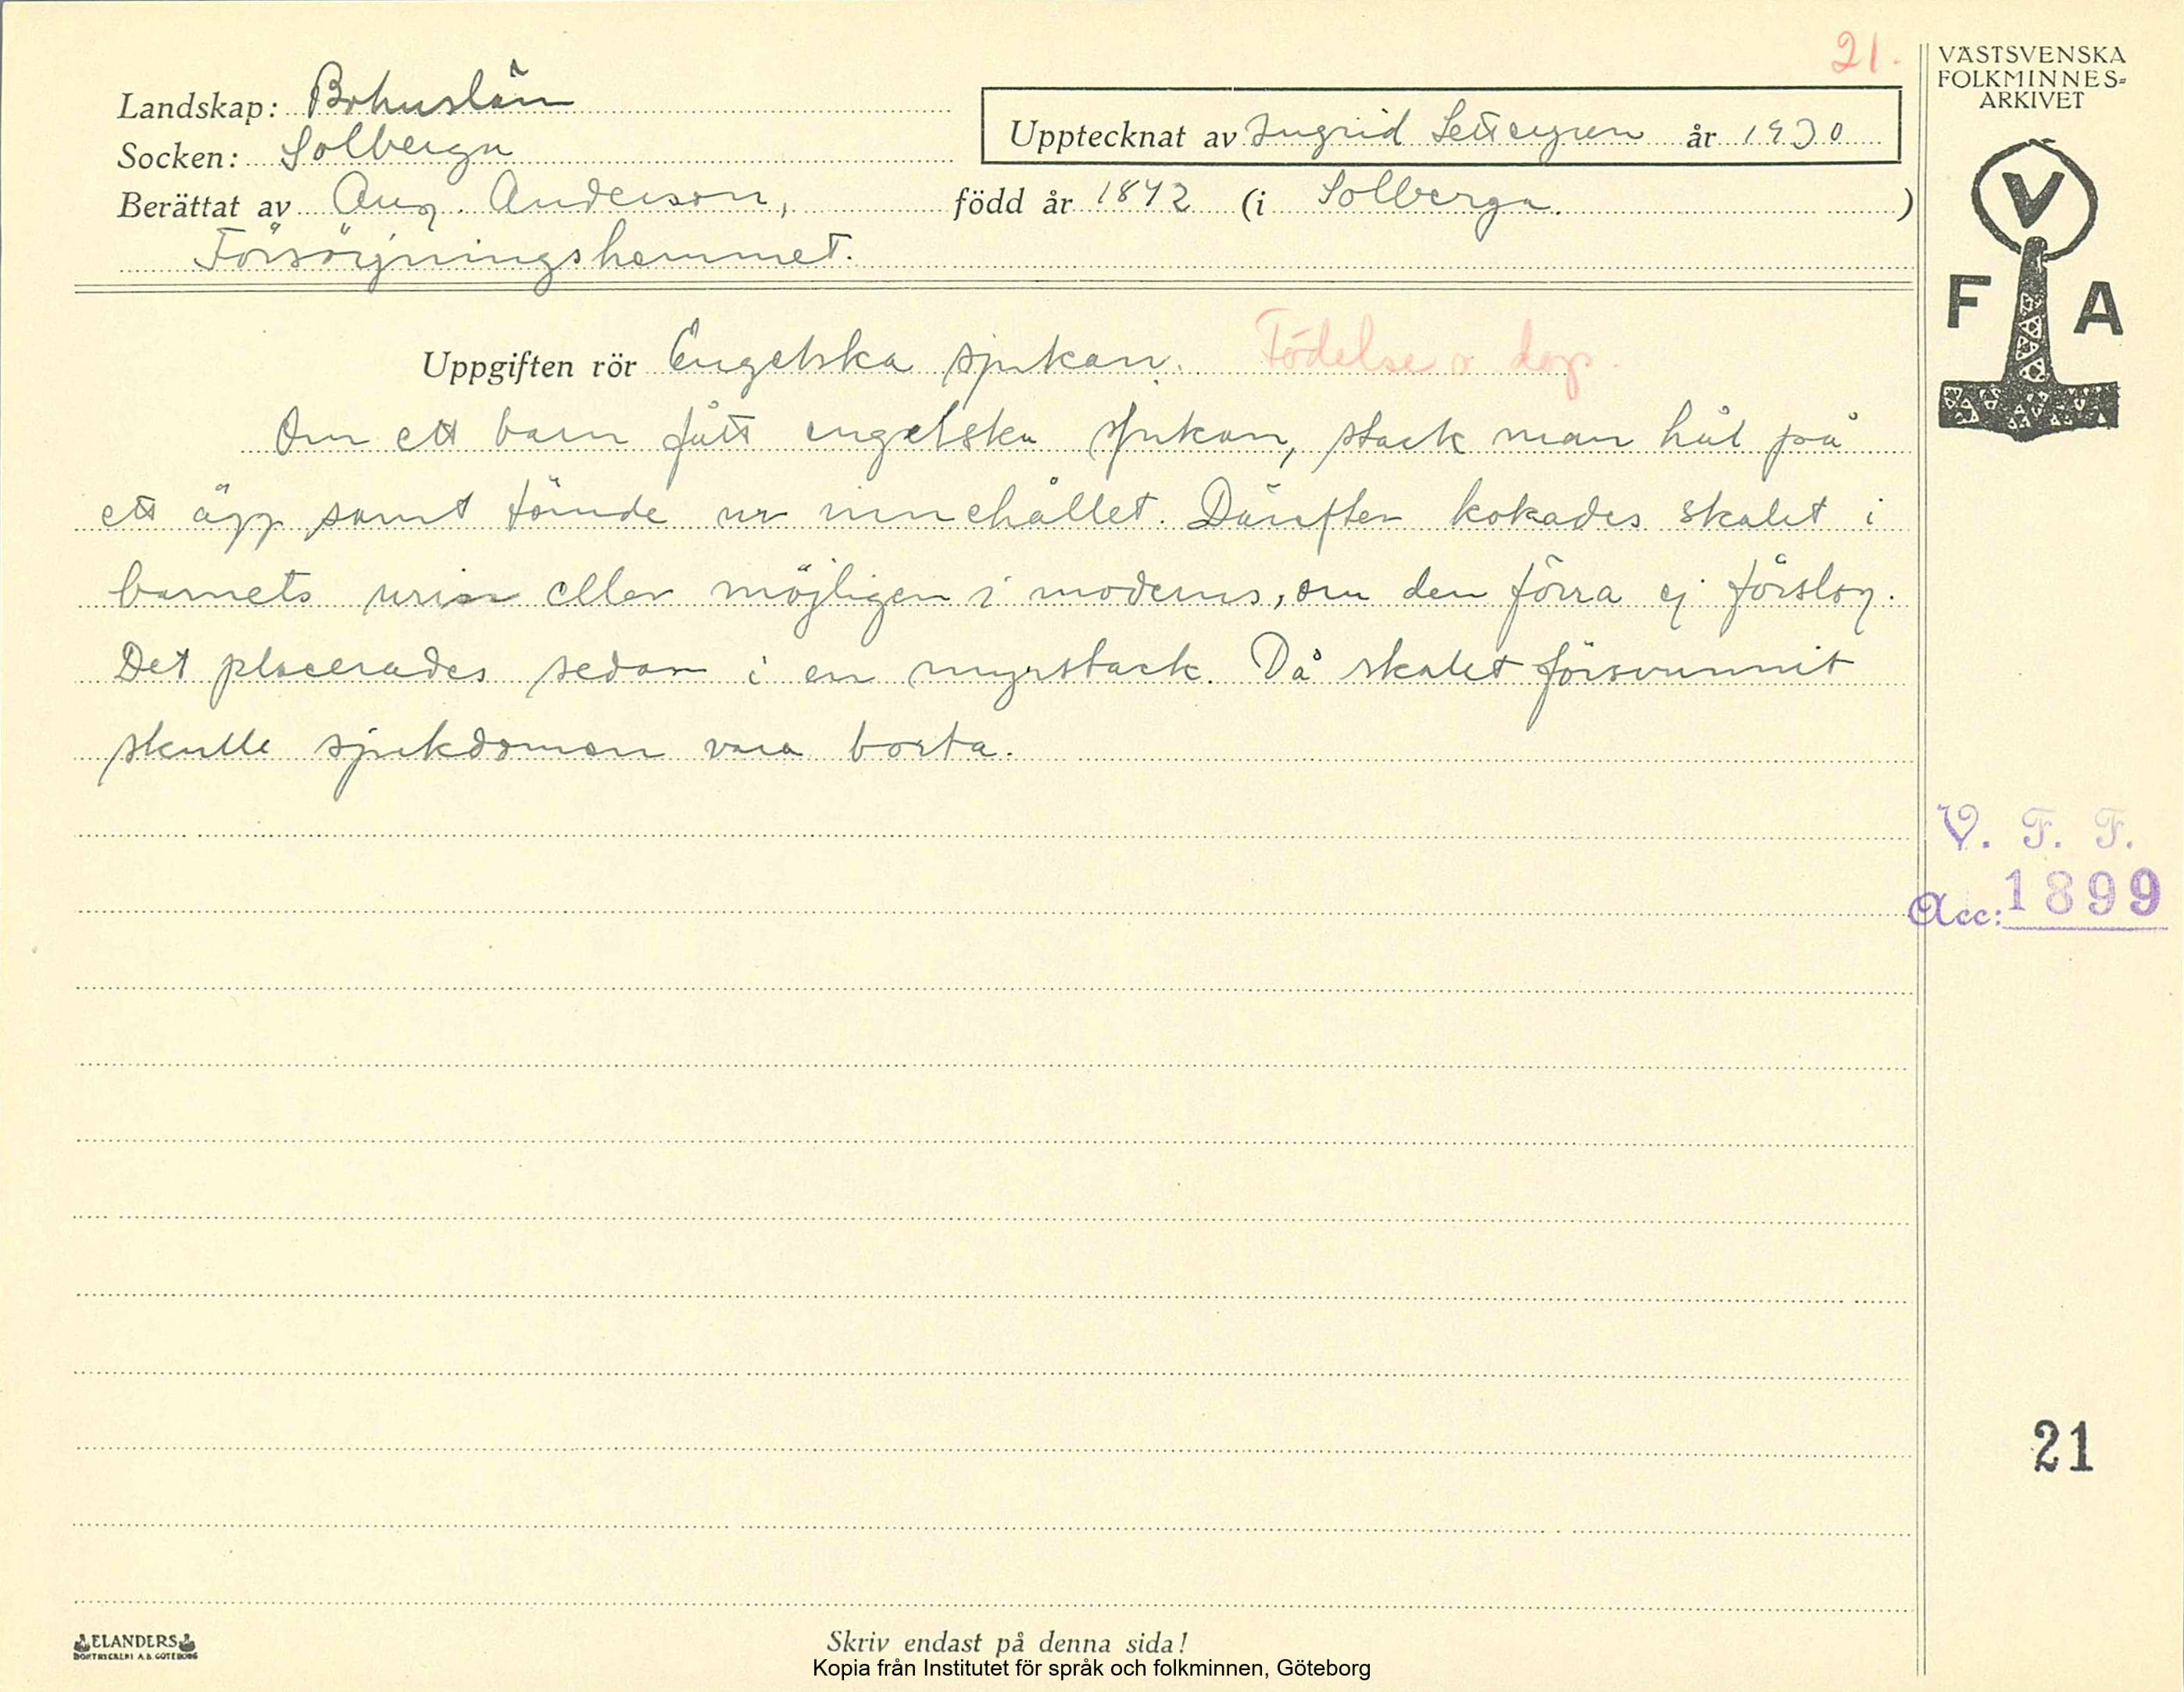 21.
VÄSTSVENSKA
FOLKMINNES-
ARKIVET
Landskap: Bohuslän
Upptecknat av Ingrid år 1930
Socken: Solberga
Berättat av Aug. Anderson, född år 1842 (i Solberga. )
Försörjningshemmet.
V
F A
Uppgiften rör Engelska sjukan. Födelse o dop.
Om ett barn fått engelska sjukan, stack man hål på
ett ägg samt tömde ur innehållet. Därefter kokades skalet i
barnets urin eller möjligen i moderns, om den förra ej förslog.
Det placerades sedan i en myrstack. Då skalet försvunnit
skulle sjukdomen vara borta.
V. F. F.
Acc: 1899
21
ELANDERS
BOKTRYCKERI A.B. GÖTEBORG
Skriv endast på denna sida!
Kopia från Institutet för språk och folkminnen, Göteborg